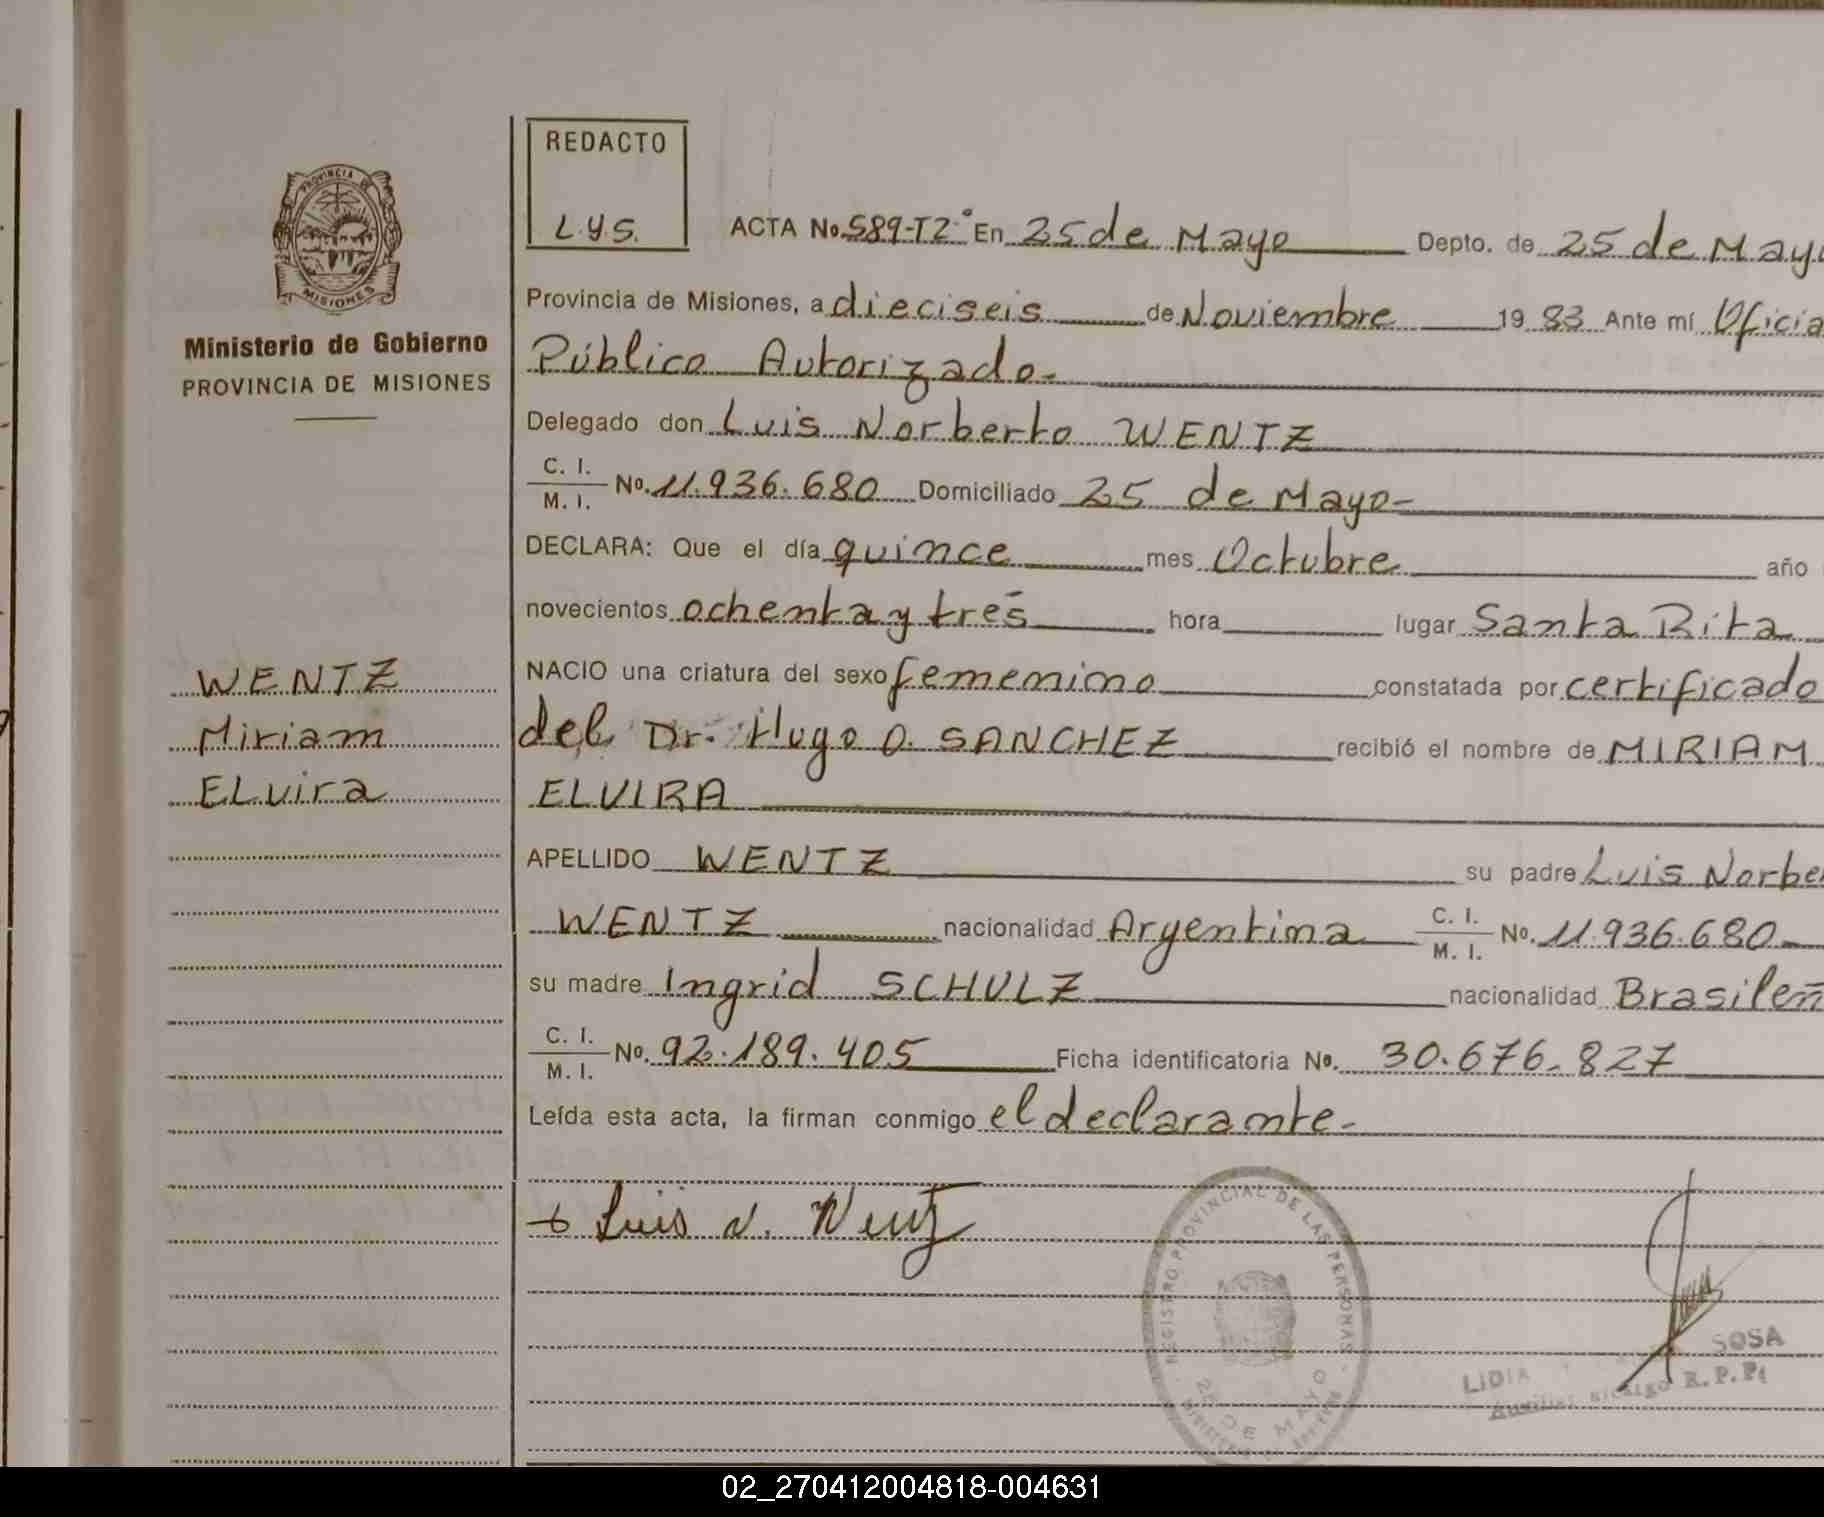 REDACTO
L.Y.S.
PROVINCIA DE
MISIONES
Ministerio de Gobierno
PROVINCIA DE MISIONES
WENTZ
Miriam
ELvira
ACTA No. 589-T2° En 25 de Mayo Depto. de 25 de May
Provincia de Misiones, a dieciseis de Noviembre 19 83 Ante mí Oficia
Público Autorizado.-
Delegado don Luis Norberto WENTZ
C. I. / M. I. No. 11.936.680 Domiciliado 25 de Mayo-
DECLARA: Que el día quince mes Octubre año
novecientos ochenta y tres hora lugar Santa Rita
NACIO una criatura del sexo femenino constatada por certificado
del Dr. Hugo O. SANCHEZ recibió el nombre de MIRIAM
ELVIRA
APELLIDO WENTZ su padre Luis Norbe
WENTZ nacionalidad Argentina C. I. / M. I. No. 11.936.680
su madre Ingrid SCHULZ nacionalidad Brasileñ
C. I. / M. I. No. 92.189.405 Ficha identificatoria No. 30.676.827
Leída esta acta, la firman conmigo el declarante.-
Luis N. Wentz
REGISTRO PROVINCIAL DE LAS PERSONAS
25 DE MAYO
LIDIA SOSA
Auxiliar R.P.P.
02_270412004818-004631